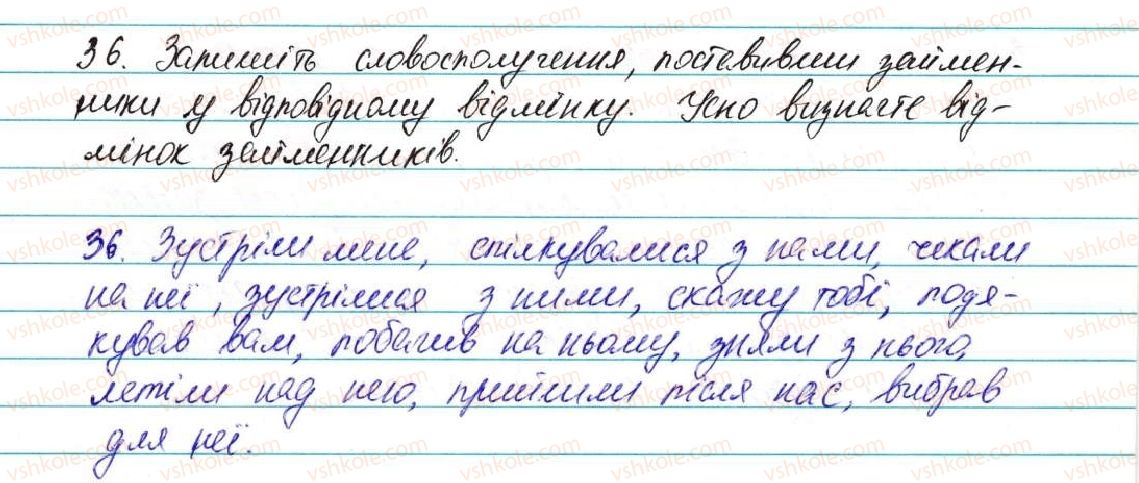 36. Запишіть словосполучення, поставивши займен-
ники у відповідному відмінку. Усно визначте від-
мінок займенників.
36. Зустріли мене, спілкувалися з нами, чекали
на неї, зустрілися з ними, скажу тобі, подя-
кував вам, побачив на ньому, зняли з нього,
летіли над нею, прийшли після нас, вибрав
для неї.